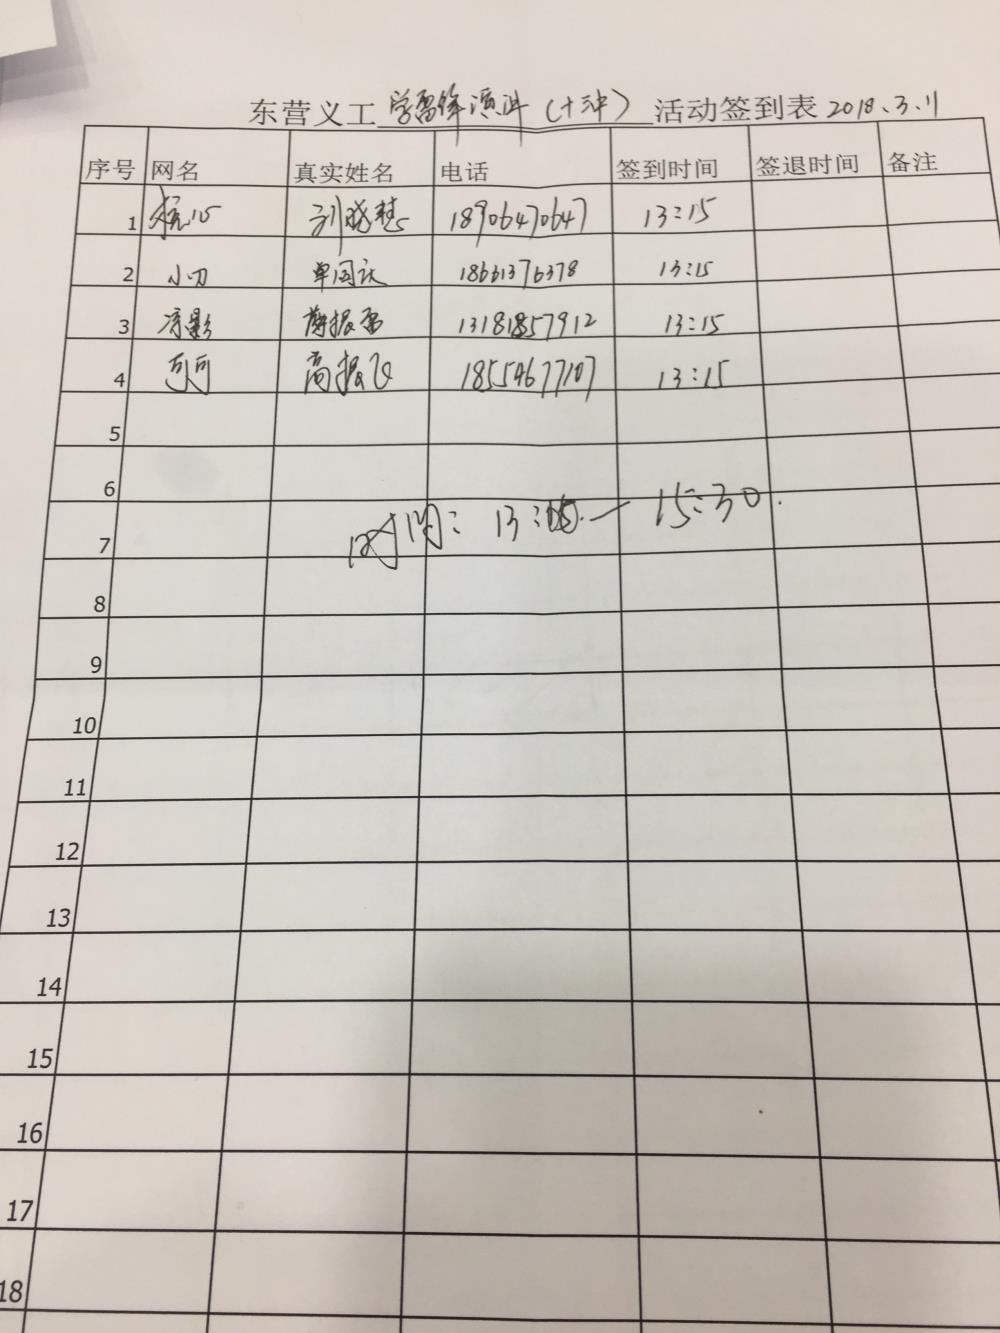 东营义工 学雷锋演讲（十沖）活动签到表 2018.3.11
序号 网名 真实姓名 电话 签到时间 签退时间 备注
1 刘晓慧 18906470647 13:15
2 小刀 单国庆 18661376378 13:15
3 凉影 薛振雷 13181857912 13:15
4 可可 高振飞 18554677107 13:15
5
6
时间: 13:05 — 15:30.
7
8
9
10
11
12
13
14
15
16
17
18